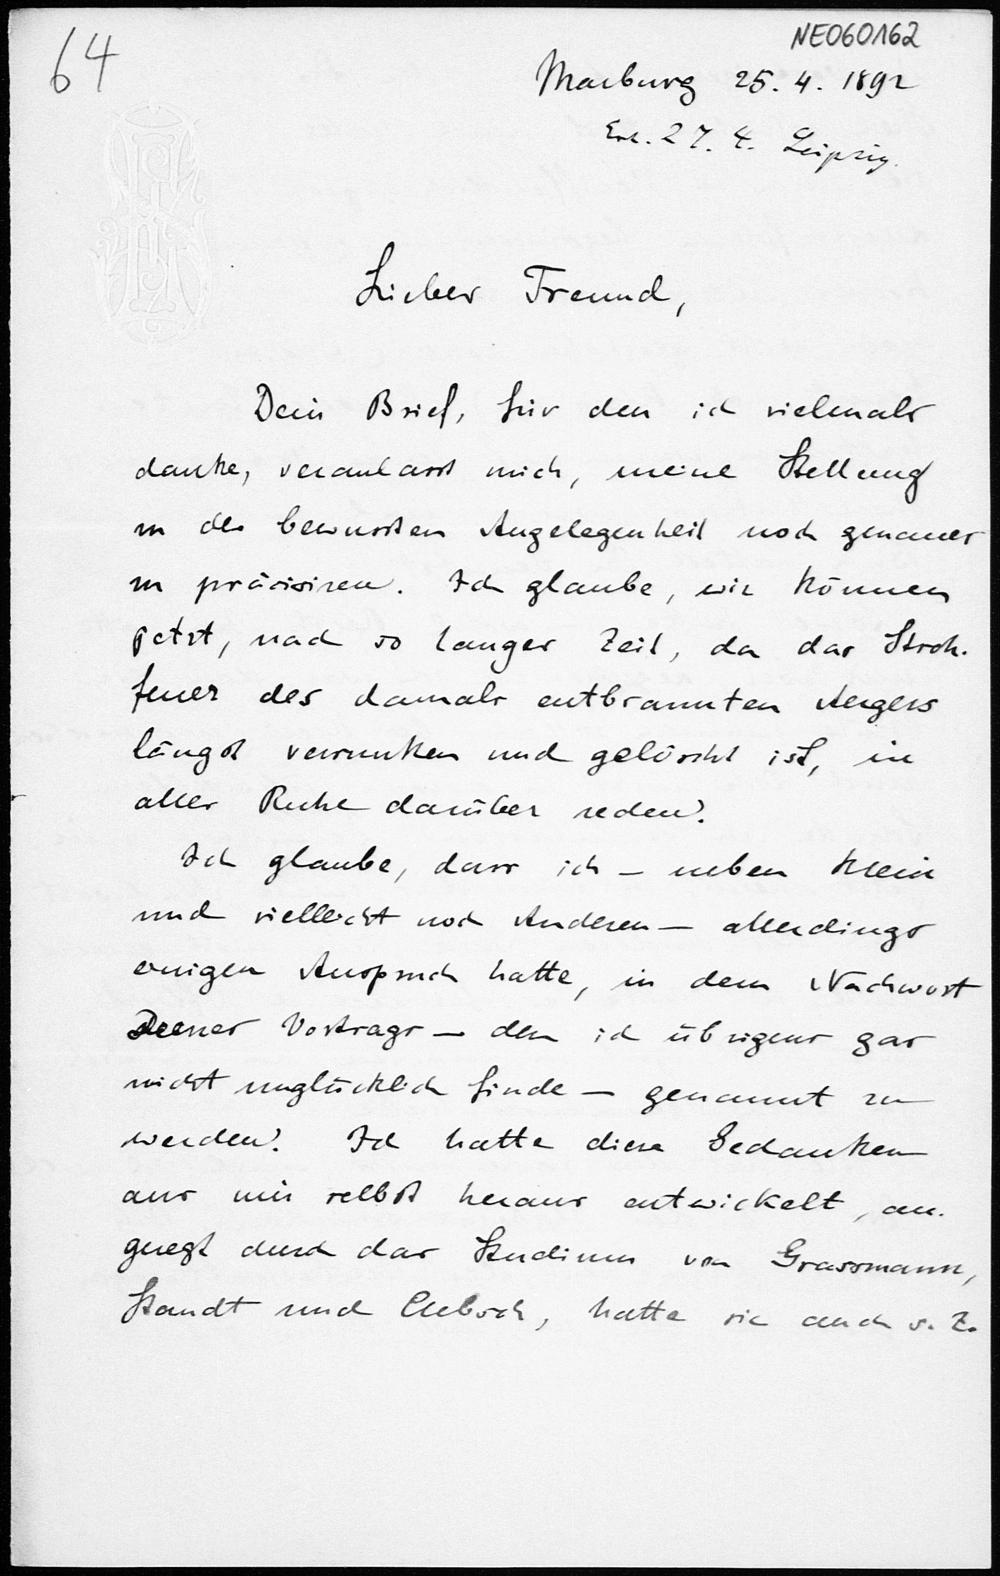 64
NE060162
Marburg 25. 4. 1892
Erh. 27. 4. Leipzig.
Lieber Freund,
Dein Brief, für den ich vielmals
danke, veranlasst mich, meine Stellung
in der bewussten Angelegenheit noch genauer
zu präcisiren. Ich glaube, wir können
jetzt, nach so langer Zeit, da das Stroh-
feuer des damals entbrannten Aergers
längst versunken und gelöscht ist, in
aller Ruhe darüber reden.
Ich glaube, dass ich – neben Klein
und vielleicht noch Anderen – allerdings
einigen Anspruch hatte, in dem Nachwort
Deines Vortrags – den ich übrigens gar
nicht unglücklich finde – genannt zu
werden. Ich hatte diese Gedanken
aus mir selbst heraus entwickelt, an-
geregt durch das Studium von Grassmann,
Staudt und Clebsch, hatte sie auch s. Z.